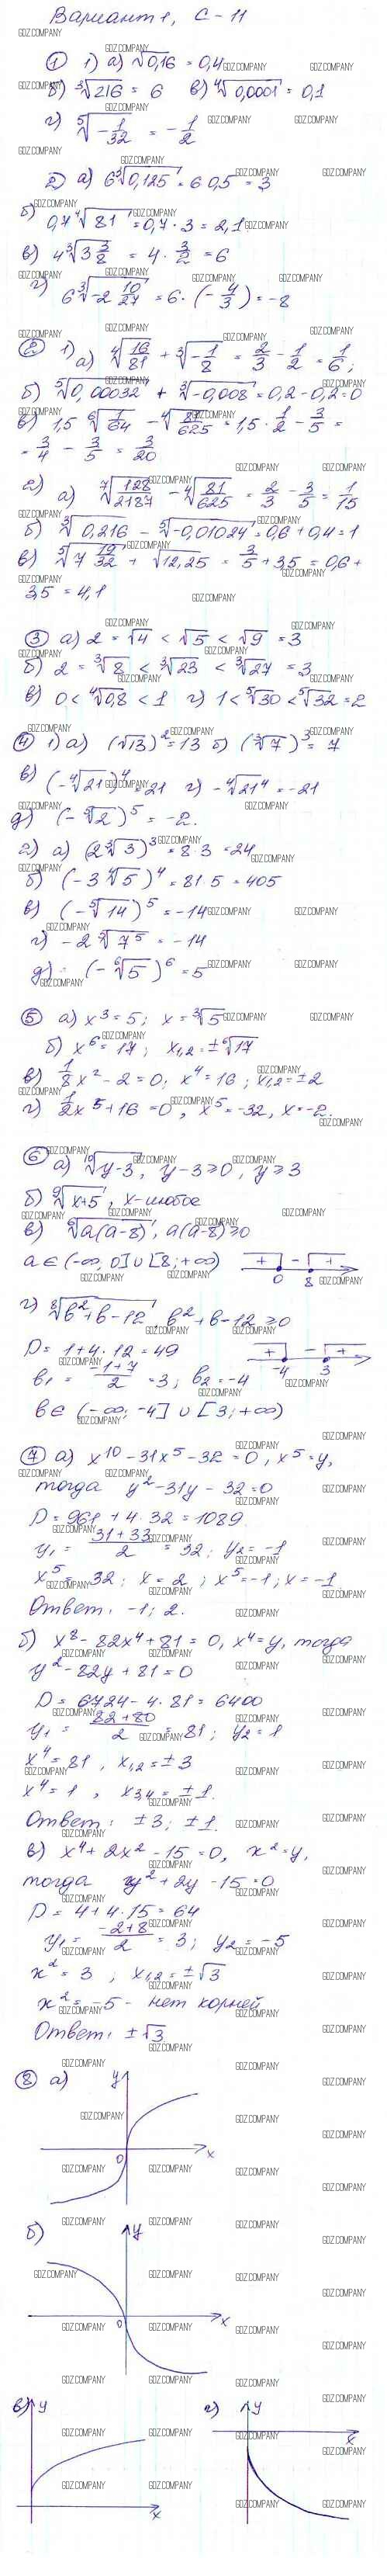 Вариант 1, С-11
① 1) а) √0,16 = 0,4
б) ∛216 = 6 в) ∜0,0001 = 0,1
г) ⁵√(-1/32) = -1/2
2) а) 6∛0,125 = 6·0,5 = 3
б) 0,7∜81 = 0,7 · 3 = 2,1
в) 4∛(3 3/8) = 4 · 3/2 = 6
г) 6∛(-2 10/27) = 6 · (-4/3) = -8
② 1) а) ∜(16/81) + ∛(-1/8) = 2/3 - 1/2 = 1/6;
б) ⁵√0,00032 + ∛-0,008 = 0,2 - 0,2 = 0
в) 1,5 ⁶√(1/64) - ∜(81/625) = 1,5 · 1/2 - 3/5 =
= 3/4 - 3/5 = 3/20
2) а) ⁷√(128/2187) - ∜(81/625) = 2/3 - 3/5 = 1/15
б) ∛0,216 - ⁵√-0,01024 = 0,6 + 0,4 = 1
в) ⁵√(7 19/32) + √12,25 = 3/5 + 3,5 = 0,6 +
3,5 = 4,1
③ а) 2 = √4 < √5 < √9 = 3
б) 2 = ∛8 < ∛23 < ∛27 = 3
в) 0 < ∜0,8 < 1 г) 1 < ⁵√30 < ⁵√32 = 2
④ 1) а) (√13)² = 13 б) (∛7)³ = 7
в) (-∜21)⁴ = 21 г) -∜21⁴ = -21
д) (-⁵√2)⁵ = -2.
2) а) (2∛3)³ = 8·3 = 24
б) (-3∜5)⁴ = 81·5 = 405
в) (-⁵√14)⁵ = -14
г) -2⁵√7⁵ = -14
д) (-⁶√5)⁶ = 5
⑤ а) x³ = 5; x = ∛5
б) x⁶ = 17; x₁,₂ = ±⁶√17
в) 1/8 x² - 2 = 0; x⁴ = 16; x₁,₂ = ±2
г) 1/2 x⁵ + 16 = 0, x⁵ = -32, x = -2.
⑥ а) ¹⁰√y-3, y-3 ≥ 0, y ≥ 3
б) ⁹√x+5, x-любое
в) ⁶√a(a-8), a(a-8) ≥ 0
a ∈ (-∞, 0] ∪ [8; +∞) + - + 0 8
г) ⁸√b²+b-12, b²+b-12 ≥ 0
D = 1+4·12 = 49 + - + -4 3
b₁ = (-1+7)/2 = 3; b₂ = -4
b ∈ (-∞; -4] ∪ [3; +∞)
⑦ а) x¹⁰ - 31x⁵ - 32 = 0, x⁵ = y,
тогда y² - 31y - 32 = 0
D = 961 + 4·32 = 1089
y₁ = (31+33)/2 = 32; y₂ = -1
x⁵ = 32; x = 2; x⁵ = -1; x = -1
Ответ: -1; 2.
б) x⁸ - 82x⁴ + 81 = 0, x⁴ = y, тогда
y² - 82y + 81 = 0
D = 6724 - 4·81 = 6400
y₁ = (82+80)/2 = 81; y₂ = 1
x⁴ = 81, x₁,₂ = ±3
x⁴ = 1, x₃,₄ = ±1.
Ответ: ±3; ±1.
в) x⁴ + 2x² - 15 = 0, x² = y,
тогда y² + 2y - 15 = 0
D = 4 + 4·15 = 64
y₁ = (-2+8)/2 = 3; y₂ = -5
x² = 3; x₁,₂ = ±√3
x² = -5 - нет корней
Ответ: ±√3
⑧ а) y
0 x
б) y
0 x
в) y г) y
x x
GDZ.COMPANY